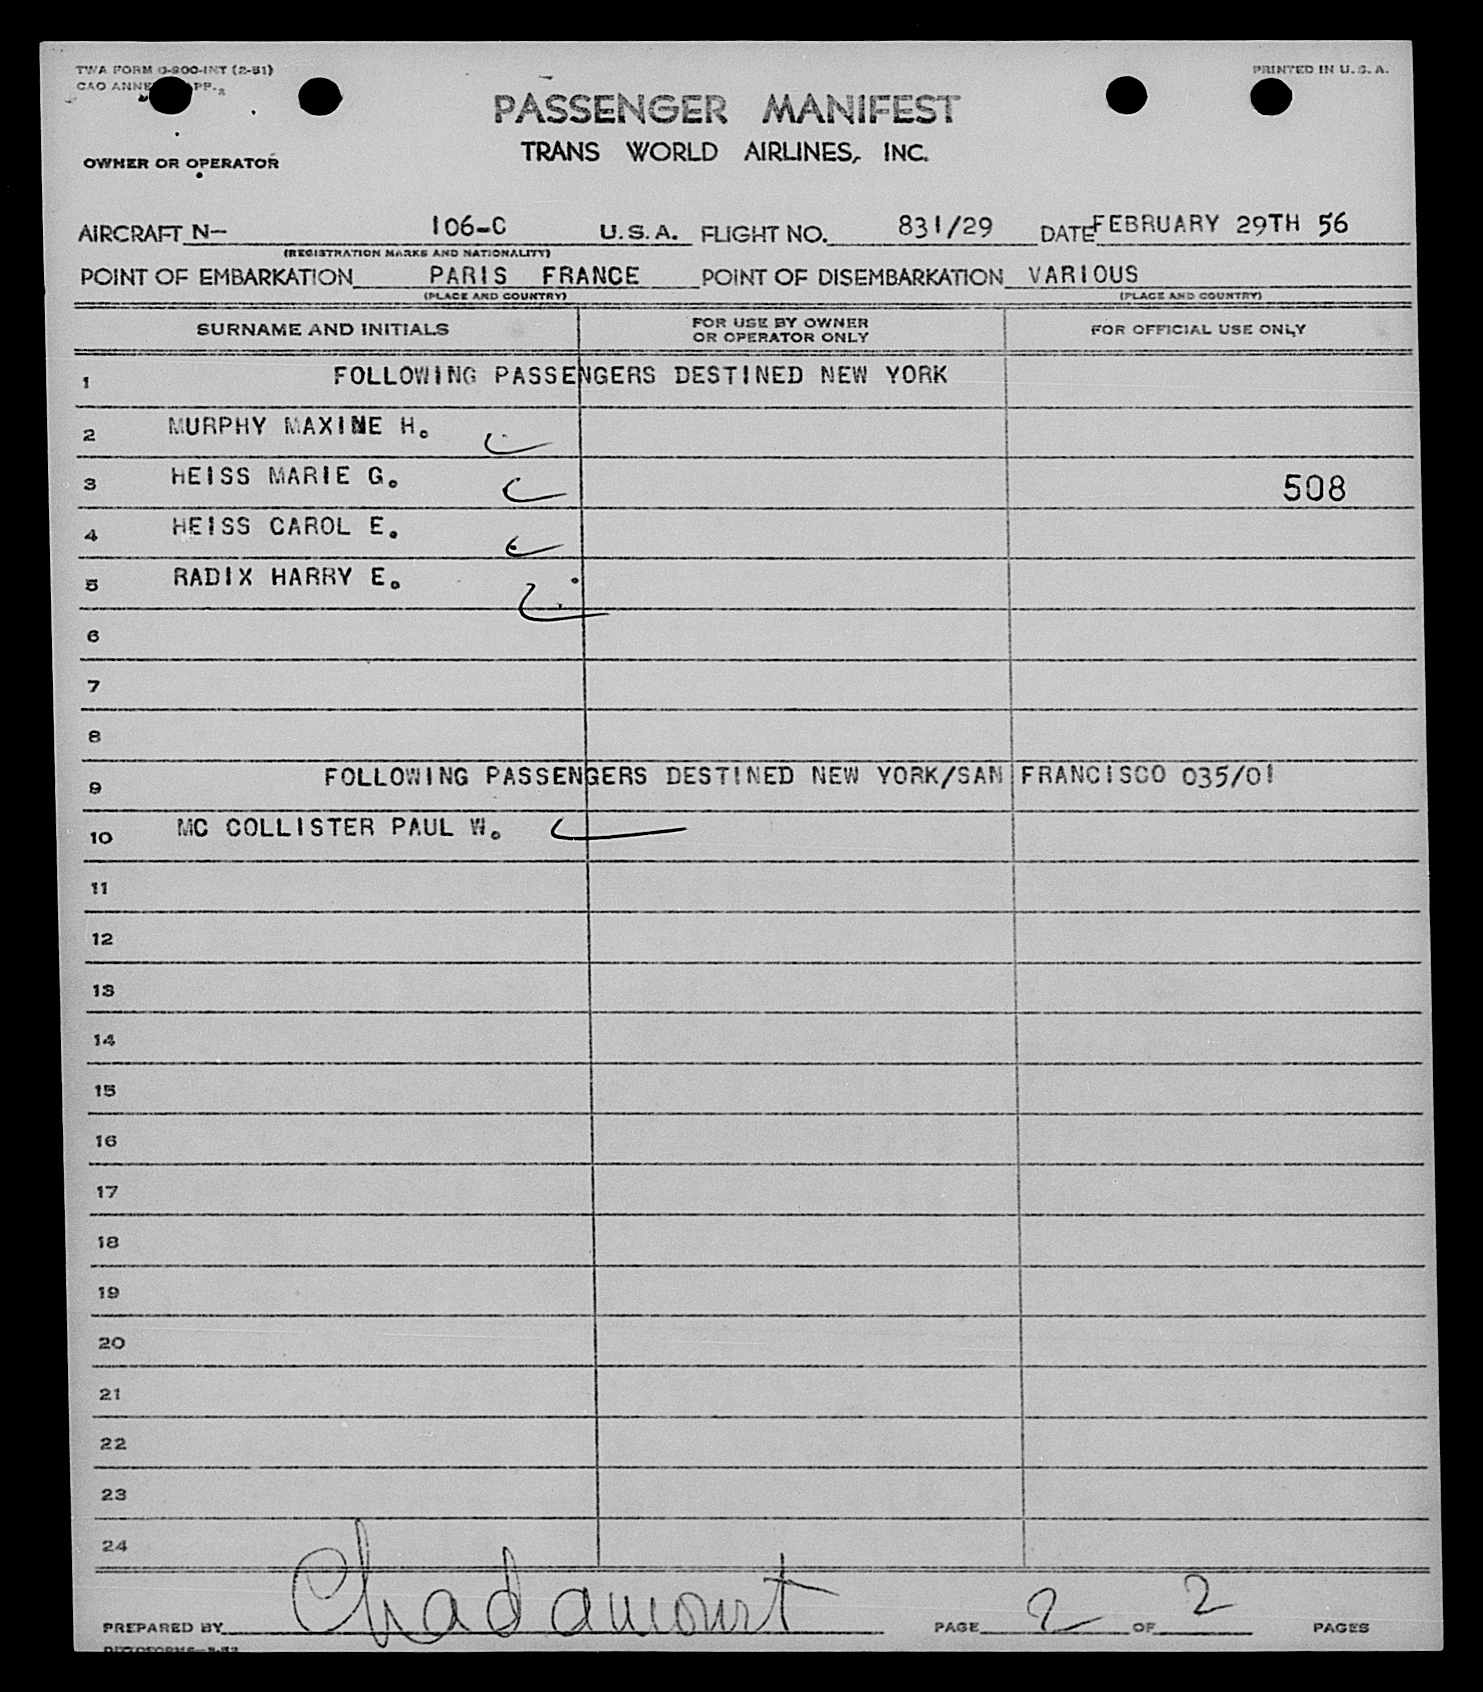 TWA FORM O-200-INT (2-51)
PRINTED IN U. S. A.
CAO ANNE
PASSENGER MANIFEST
TRANS WORLD AIRLINES, INC.
OWNER OR OPERATOR
AIRCRAFT N- 106-C U. S. A. FLIGHT NO. 831/29 DATE FEBRUARY 29TH 56
(REGISTRATION MARKS AND NATIONALITY)
POINT OF EMBARKATION PARIS FRANCE POINT OF DISEMBARKATION VARIOUS
(PLACE AND COUNTRY) (PLACE AND COUNTRY)
SURNAME AND INITIALS FOR USE BY OWNER OR OPERATOR ONLY FOR OFFICIAL USE ONLY
1 FOLLOWING PASSENGERS DESTINED NEW YORK
2 MURPHY MAXINE H.
3 HEISS MARIE G. 508
4 HEISS CAROL E.
5 RADIX HARRY E.
6
7
8
9 FOLLOWING PASSENGERS DESTINED NEW YORK/SAN FRANCISCO 035/01
10 MC COLLISTER PAUL W.
11
12
13
14
15
16
17
18
19
20
21
22
23
24
PREPARED BY PAGE 2 OF 2 PAGES